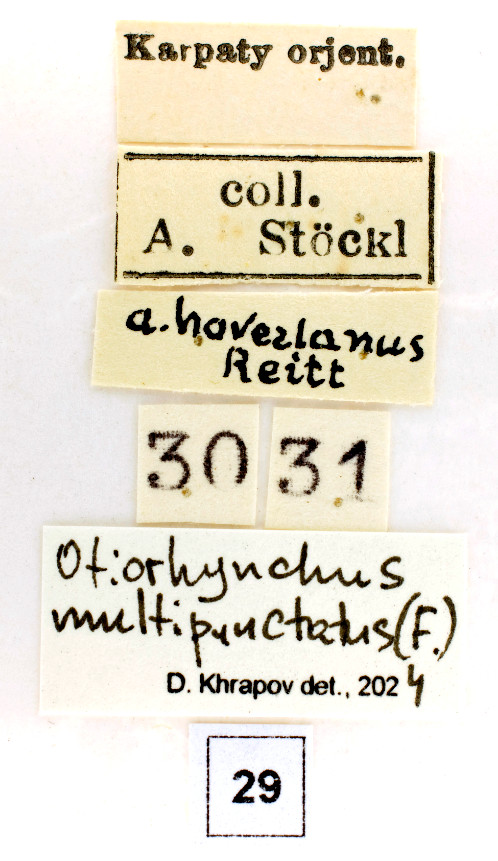 Karpaty orjent.
coll.
A. Stöckl
a. hoverlanus
Reitt
30 31
Otiorhynchus
multipunctatus (F.)
D. Khrapov det., 2024
29